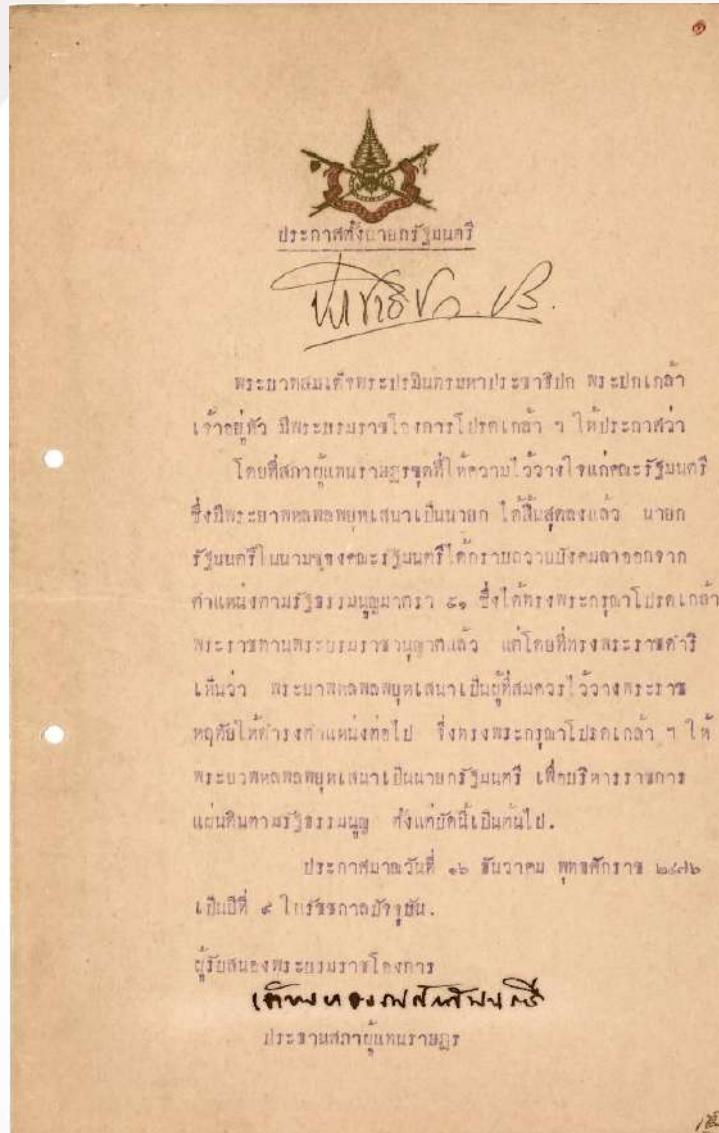 ประกาศตั้งนายกรัฐมนตรี
ประชาธิปก. ปร.
พระบาทสมเด็จพระปรมินทรมหาประชาธิปก พระปกเกล้า
เจ้าอยู่หัว มีพระบรมราชโองการโปรดเกล้า ฯ ให้ประกาศว่า
โดยที่สภาผู้แทนราษฎรชุดที่ให้ความไว้วางใจแก่คณะรัฐมนตรี
ซึ่งมีพระยาพหลพลพยุหเสนาเป็นนายก ได้สิ้นสุดลงแล้ว นายก
รัฐมนตรีในนามของคณะรัฐมนตรีได้กราบถวายบังคมลาออกจาก
ตำแหน่งตามรัฐธรรมนูญมาตรา ๕๑ ซึ่งได้ทรงพระกรุณาโปรดเกล้า
พระราชทานพระบรมราชานุญาตแล้ว แต่โดยที่ทรงพระราชดำริ
เห็นว่า พระยาพหลพลพยุหเสนาเป็นผู้ที่สมควรไว้วางพระราช
หฤทัยให้ดำรงตำแหน่งต่อไป จึ่งทรงพระกรุณาโปรดเกล้า ฯ ให้
พระยาพหลพลพยุหเสนาเป็นนายกรัฐมนตรี เพื่อบริหารราชการ
แผ่นดินตามรัฐธรรมนูญ ตั้งแต่บัดนี้เป็นต้นไป.
ประกาศมาณวันที่ ๑๖ ธันวาคม พุทธศักราช ๒๔๗๖
เป็นปีที่ ๙ ในรัชชกาลปัจจุบัน.
ผู้รับสนองพระบรมราชโองการ
ประธานสภาผู้แทนราษฎร